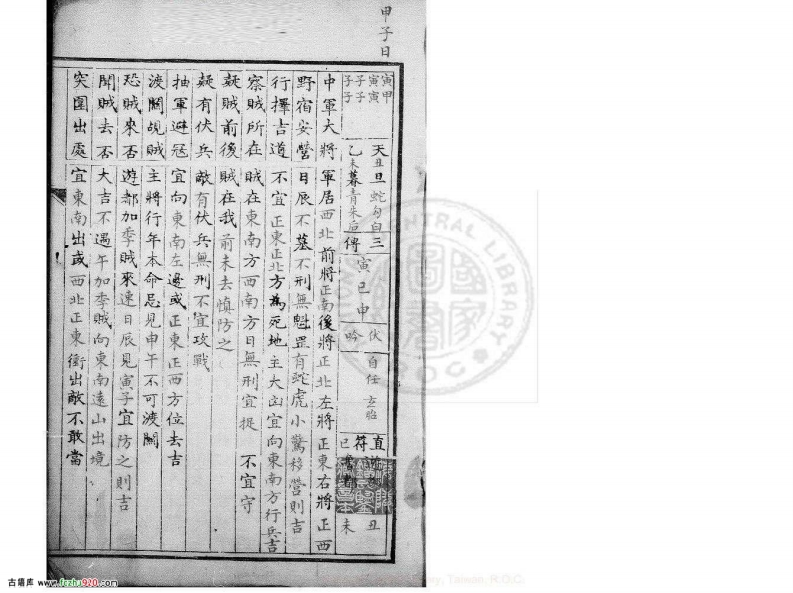 甲子日
寅甲 寅寅 子子 子子
天丑旦 蛇勾白 三 寅巳申 伏 自任 玄胎 直符 丑
乙未暮 青朱后 傳 吟 巳 未
中軍大將 軍居西北前將正南後將正北左將正東右將正西
野宿安營 日辰不墓不刑無魁罡有蛇虎小驚移營則吉
行擇吉道 不宜正東正北方為死地主大凶宜向東南方行兵吉
察賊所在 賊在東南方西南方日無刑宜捉 不宜守
疑賊前後 賊在我前未去慎防之
疑有伏兵 敵有伏兵無刑不宜攻戰
抽軍避冦 宜向東南左邊或正東正西方位去吉
渡關覘賊 主將行年本命忌見申午不可渡關
恐賊來否 遊都加季賊來速日辰見寅子宜防之則吉
聞賊去否 大吉不遇午加季賊向東南遠山出境
突圍出處 宜東南出或西北正東衝出敵不敢當
CENTRAL LIBRARY
R.O.C.
Taiwan, R.O.C.
古籍库 www.fozhu920.com